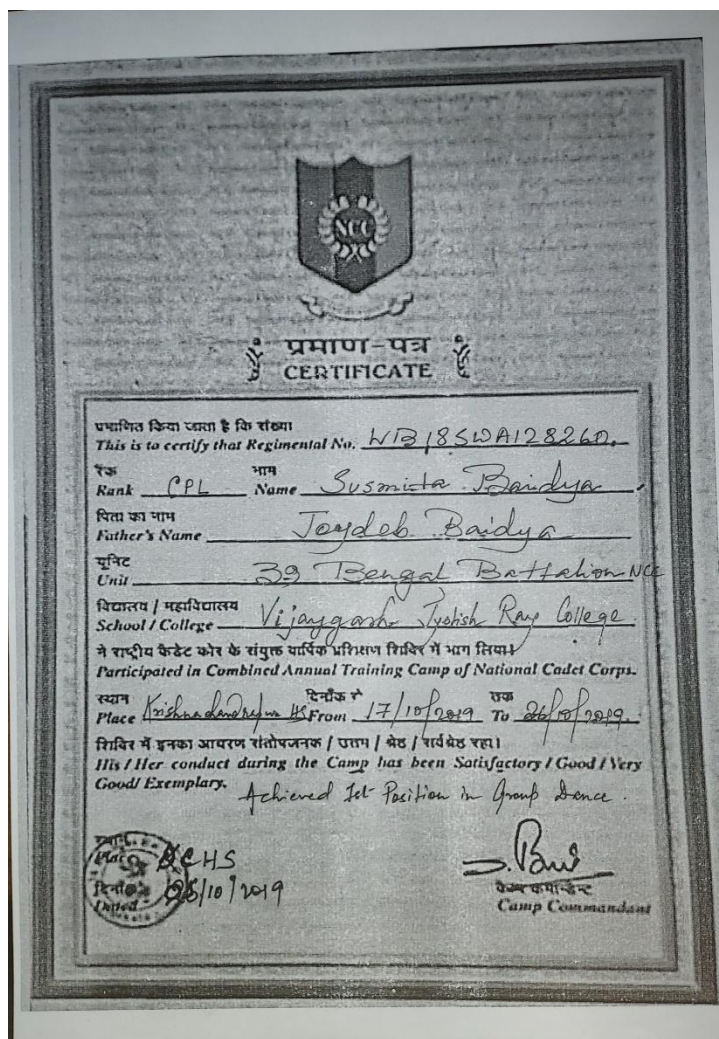 NCC
प्रमाण-पत्र
CERTIFICATE
प्रमाणित किया जाता है कि संख्या
This is to certify that Regimental No. WB18SWA128260.
रैंक नाम
Rank CPL Name Susmista Baidya
पिता का नाम
Father's Name Joydeb Baidya
यूनिट
Unit 39 Bengal Battalion NCC
विद्यालय / महाविद्यालय
School / College Vijaygarh Jyotish Ray College.
ने राष्ट्रीय कैडेट कोर के संयुक्त वार्षिक प्रशिक्षण शिविर में भाग लिया।
Participated in Combined Annual Training Camp of National Cadet Corps.
स्थान दिनाँक से तक
Place Krishnachandrapur HS From 17/10/2019 To 26/10/2019.
शिविर में इनका आचरण संतोषजनक / उत्तम / श्रेष्ठ / सर्वश्रेष्ठ रहा।
His / Her conduct during the Camp has been Satisfactory / Good / Very
Good/ Exemplary.
Achieved 1st Position in Group Dance.
स्थान
Place KCHS
दिनाँक
Dated 26/10/2019
कैम्प कमान्डेन्ट
Camp Commandant